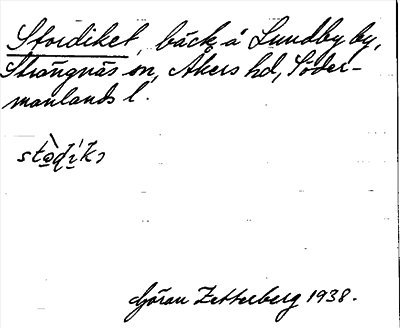 Stordiket, bäck å Lundby by,
Strängnäs sn, Åkers hd, Söder-
manlands l.
Göran Zetterberg 1938.